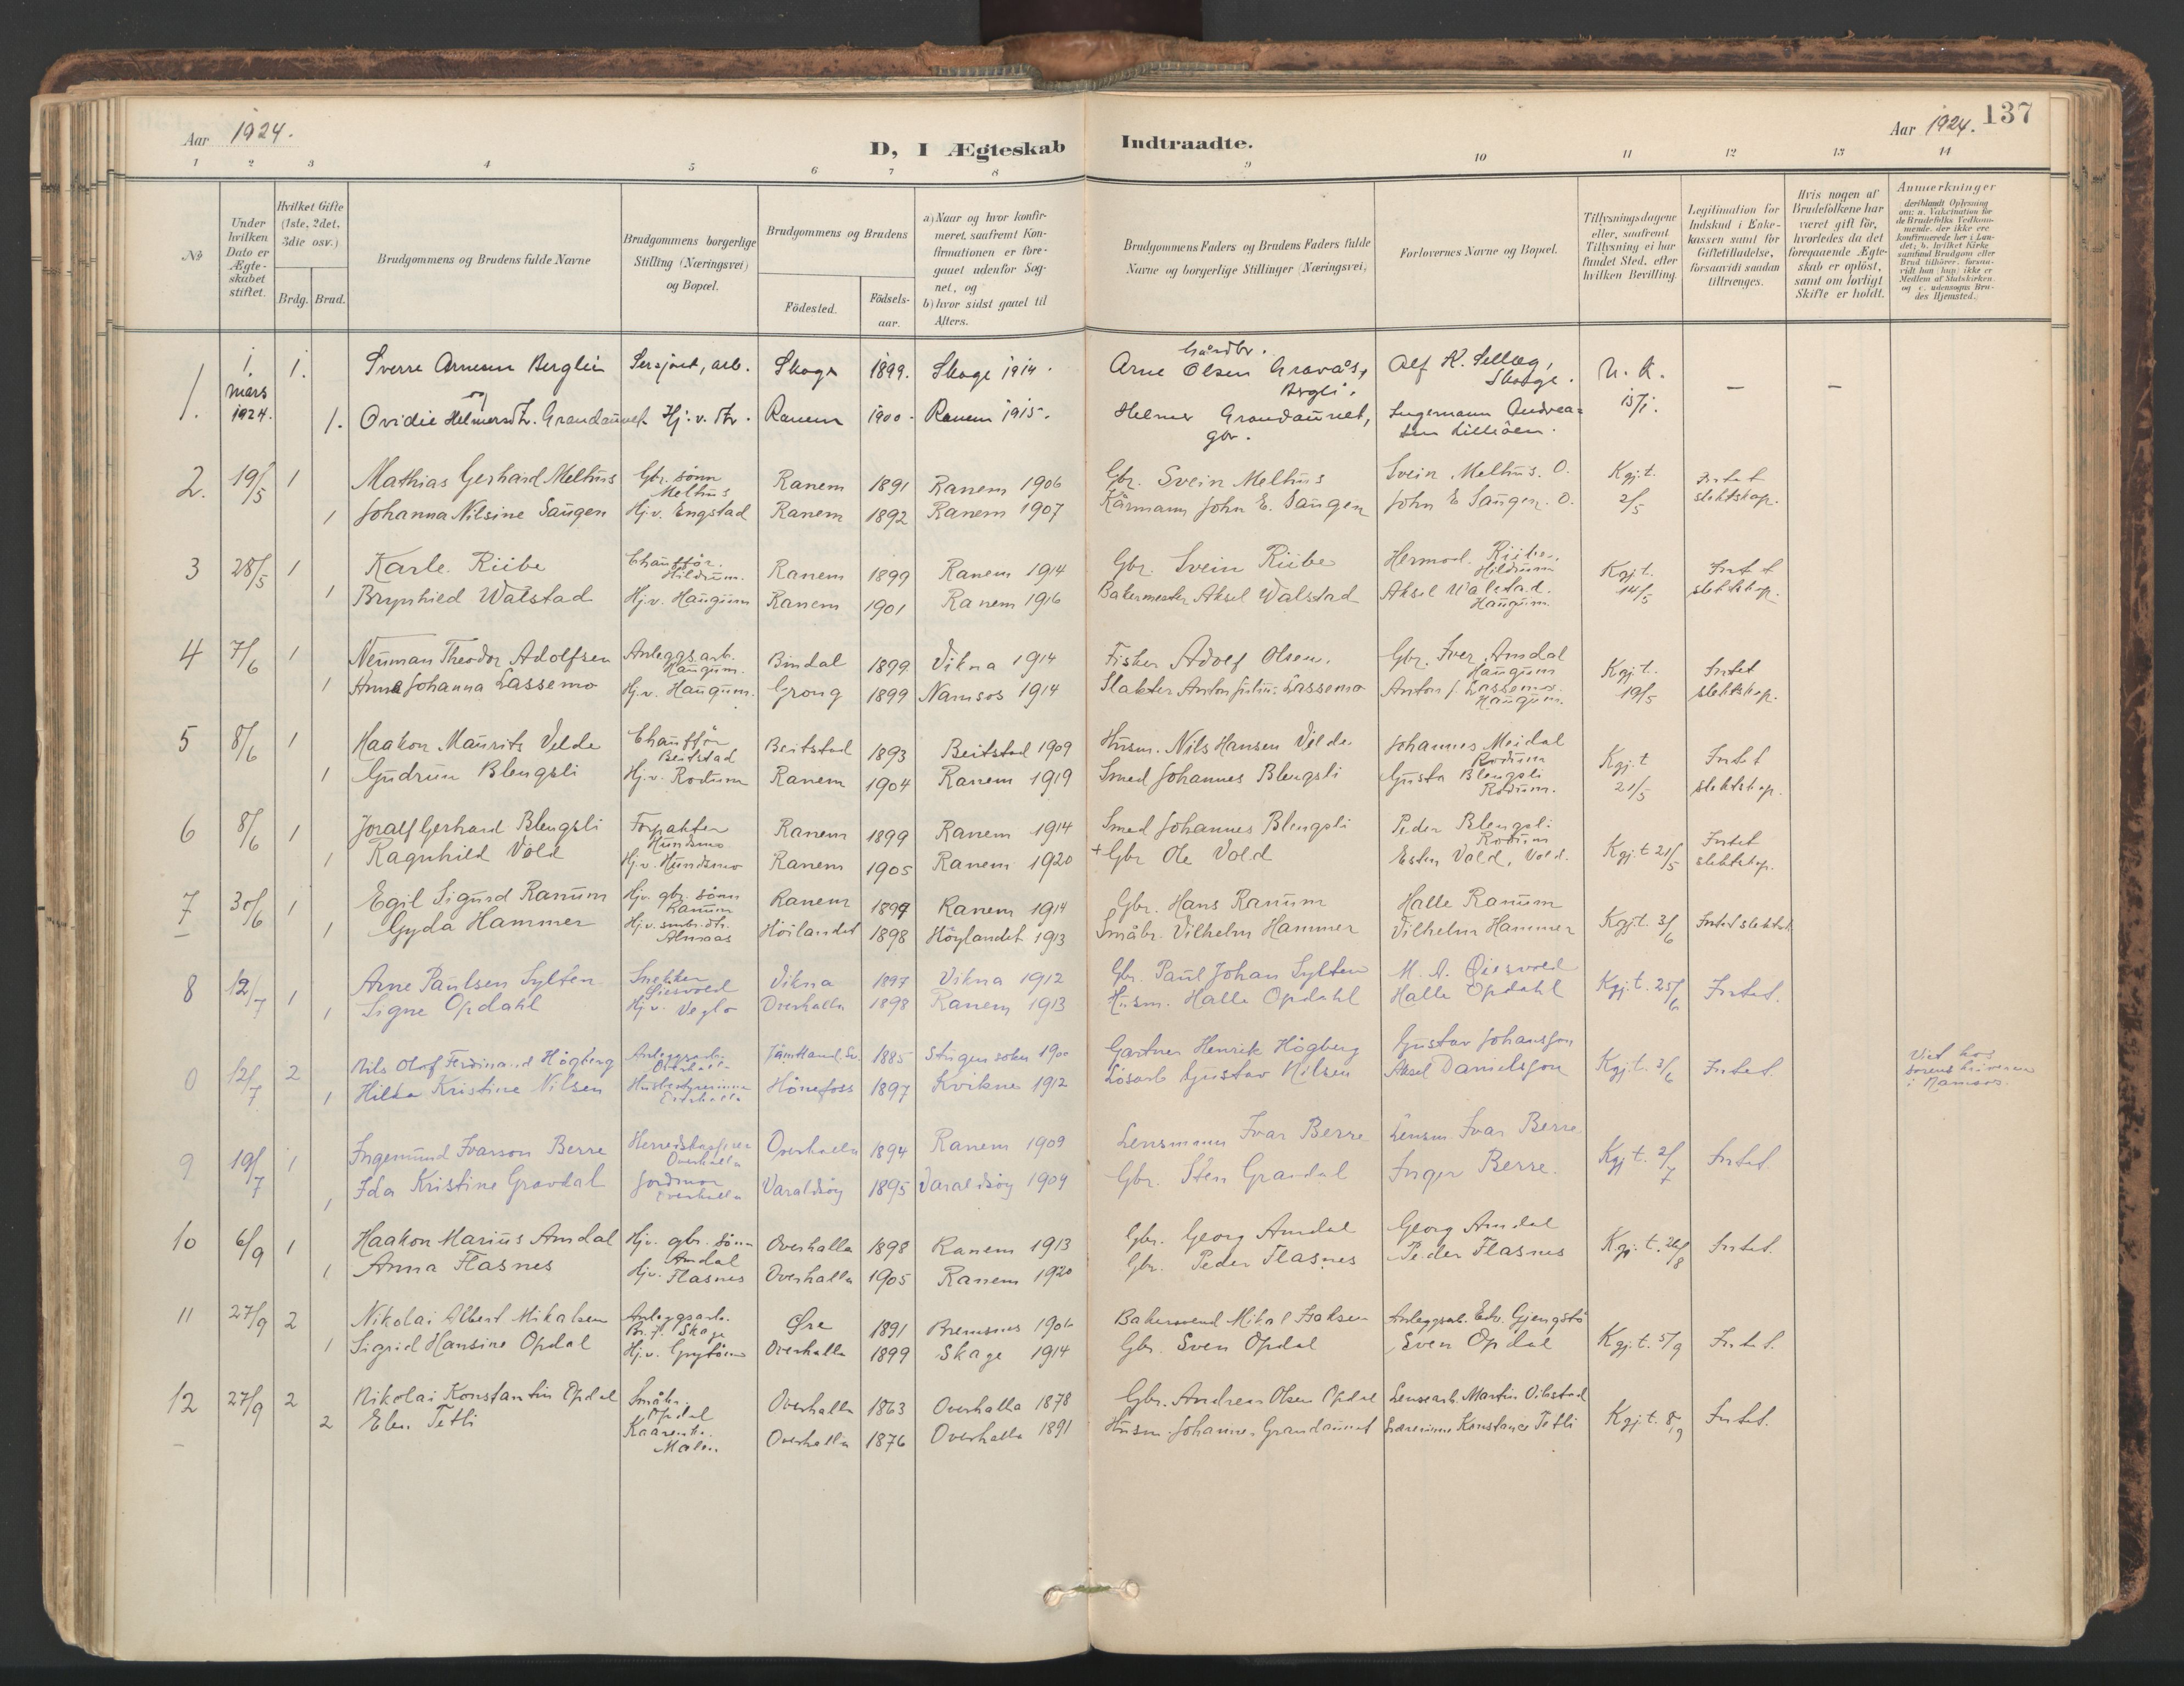 137
Aar 1924.
D, I Ægteskab Indtraadte.
Aar 1924.
1 2 3 4 5 6 7 8 9 10 11 12 13 14
No
Under hvilken Dato er Ægteskabet stiftet.
Hvilket Gifte (1ste, 2det, 3die osv.)
Brdg. Brud.
Brudgommens og Brudens fulde Navne
Brudgommens borgerlige Stilling (Næringsvei) og Bopæl.
Brudgommens og Brudens
Födested. Födsels-aar.
a) Naar og hvor konfirmeret, saafremt Konfirmationen er foregaaet udenfor Sognet, og
b) hvor sidst gaaet til Alters.
Brudgommens Faders og Brudens Faders fulde Navne og borgerlige Stillinger (Næringsvei)
Forlovernes Navne og Bopæl.
Tillysningsdagene eller, saafremt Tillysning ei har fundet Sted, efter hvilken Bevilling.
Legitimation for Indskud i Enkekassen samt for Giftetilladelse, forsaavidt saadan tiltrænges.
Hvis nogen af Brudefolkene har været gift før, hvorledes da det foregaaende Ægteskab er oplöst, samt om lovligt Skifte er holdt.
Anmerkninger (deriblandt Oplysning om: a. Vakcination for de Brudefolks Vedkommende, der ikke ere konfirmerede her i Landet; b. hvilket Kirkesamfund Brudgom eller Brud tilhörer, forsaavidt han (hun) ikke er Medlem af Statskirken, og c. udensogns Brudes Hjemsted.)
1. 1. mars 1924. 1. Sverre Arnesen Berglin Sersjant, arb. Skage 1899. Skage 1914. Arne Olsen Gravås, Bergli. Alf K. Sellæg, Skage. U. K. 15/1. — —
og
1. Ovidie Helmersdtr. Grandaunet Hj. v. dtr. Ranem 1900. Ranem 1915. Helmer Grandaunet, gbr. Ingemann Andreassen Lilleöen.
2. 19/5 1 Mathias Gerhard Melhus Gbr. sönn Melhus Ranem 1891 Ranem 1906 Gbr. Svein Melhus Svein Melhus. O. Kgj.t. 2/5 Intet slektskap.
1 Johanna Nilsine Saugen Hj.v. Engstad Ranem 1892 Ranem 1907 Kårmann John E. Saugen John E. Saugen. O.
3 28/5 1 Karle Riibe Chauffør. Hildrum. Ranem 1899 Ranem 1914 Gbr. Svein Riibe Hermod Riibe, Hildrum Kgj.t. 14/5 Intet slektskap.
1 Brynhild Walstad Hj.v. Haugum Ranem 1901 Ranem 1916 Bakermester Aksel Walstad Aksel Walstad. Haugum.
4 7/6 1 Neuman Theodor Adolfsen Anleggsarb. Haugum. Bindal 1899 Vikna 1914 Fisker Adolf Olsen. Gbr. Iver Amdal Haugum Kgj.t. 19/5 Intet slektskap.
1 Anna Johanna Lassemo Hj.v. Haugum. Grong 1899 Namsos 1914 Slakter Anton Lassemo Anton J. Lassemo. Haugum.
5 8/6 1 Haakon Mauritz Velde Chauffør Beitstad Beitstad 1893 Beitstad 1909 Husm. Nils Hansen Velde Johannes Meidal Rodum Kgj.t 21/5 Intet slektskap.
1 Gudrun Blengsli Hj.v. Rodum Ranem 1904 Ranem 1919 Smed Johannes Blengsli Gusta Blengsli Rodum.
6 8/6 1 Joralf Gerhard Blengsli Forpakter Hundsmo Ranem 1899 Ranem 1914 Smed Johannes Blengsli Peder Blengsli Rodum Kgj.t 21/5 Intet slektskap.
1 Ragnhild Vold Hj.v. Hundsmo Ranem 1905 Ranem 1920 + Gbr Ole Vold Esten Vold, Vold.
7 30/6 1 Egil Sigurd Ranum Hjv. gbr. sönn Ranum Ranem 1899 Ranem 1914 Gbr. Hans Ranum Halle Ranum Kgj.t. 3/6 Intet slektsk.
1 Gyda Hammer Hj.v. smbr. dtr. Almaas Höilandet 1898 Höylandet 1913 Småbr. Vilhelm Hammer Vilhelm Hammer
8 12/7 1 Arne Paulsen Sylten Snekker Öiesvold Vikna 1897 Vikna 1912 Gbr. Paul Johan Sylten M. A. Öiesvold Kgj.t. 25/6 Intet.
1 Signe Opdahl Hj.v. Veglo Overhalla 1898 Ranem 1913 Husm. Halle Opdahl Halle Opdahl
0 12/7 2 Nils Olof Ferdinand Högberg Anleggsarb. Overhalla Jämtland. Sv. 1885 Stugun soken 1900 Gartner Henrik Högberg Gustav Johansson Kgj.t. 3/6 Intet. Viet hos sorenskriveren i Namsos.
1 Hilda Kristine Nilsen Husbestyrerinne Overhalla Hönefoss 1897 Kvikne 1912 Lösarb Gustav Nilsen Aksel Danielsson
9 19/7 1 Ingemund Ivarson Berre Herredskasserer Overhalla Overhalla 1894 Ranem 1909 Lensmann Ivar Berre Lensm. Ivar Berre Kgj.t. 2/7 Intet
1 Ida Kristine Gravdal Jordmor Overhalla Varaldsöy 1895 Varaldsöy 1909 Gbr. Sten Gravdal Inger Berre.
10 6/9 1 Haakon Marius Amdal Hjv. gbr. sönn Amdal Overhalla 1898 Ranem 1913 Gbr. Georg Amdal Georg Amdal Kgj.t. 26/8 Intet.
1 Anna Flasnes Hjv. Flasnes Overhalla 1905 Ranem 1920 Gbr. Peder Flasnes Peder Flasnes
11 27/9 2 Nikolai Albert Mikalsen Anleggsarb. Skage Øre 1891 Bremsnes 1906 Bakersvend Mikal Isaksen Anleggsarb. Edv. Gjengstö Kgj.t. 5/9 Intet.
1 Sigrid Hansine Opdal Hj.v. Grytöien Overhalla 1899 Skage 1914 Gbr. Sven Opdal Sven Opdal
12 27/9 2 Nikolai Konstantin Opdal Småbr. Opdal Overhalla 1863 Overhalla 1878 Gbr. Andreas Olsen Opdal Lensearb. Martin Vibstad Kgj.t. 8/9 Intet.
2 Elen Tetli Kaarenke. Malen Overhalla 1876 Overhalla 1891 Husm. Johannes Grandaunet Lærerinne Konstance Tetli